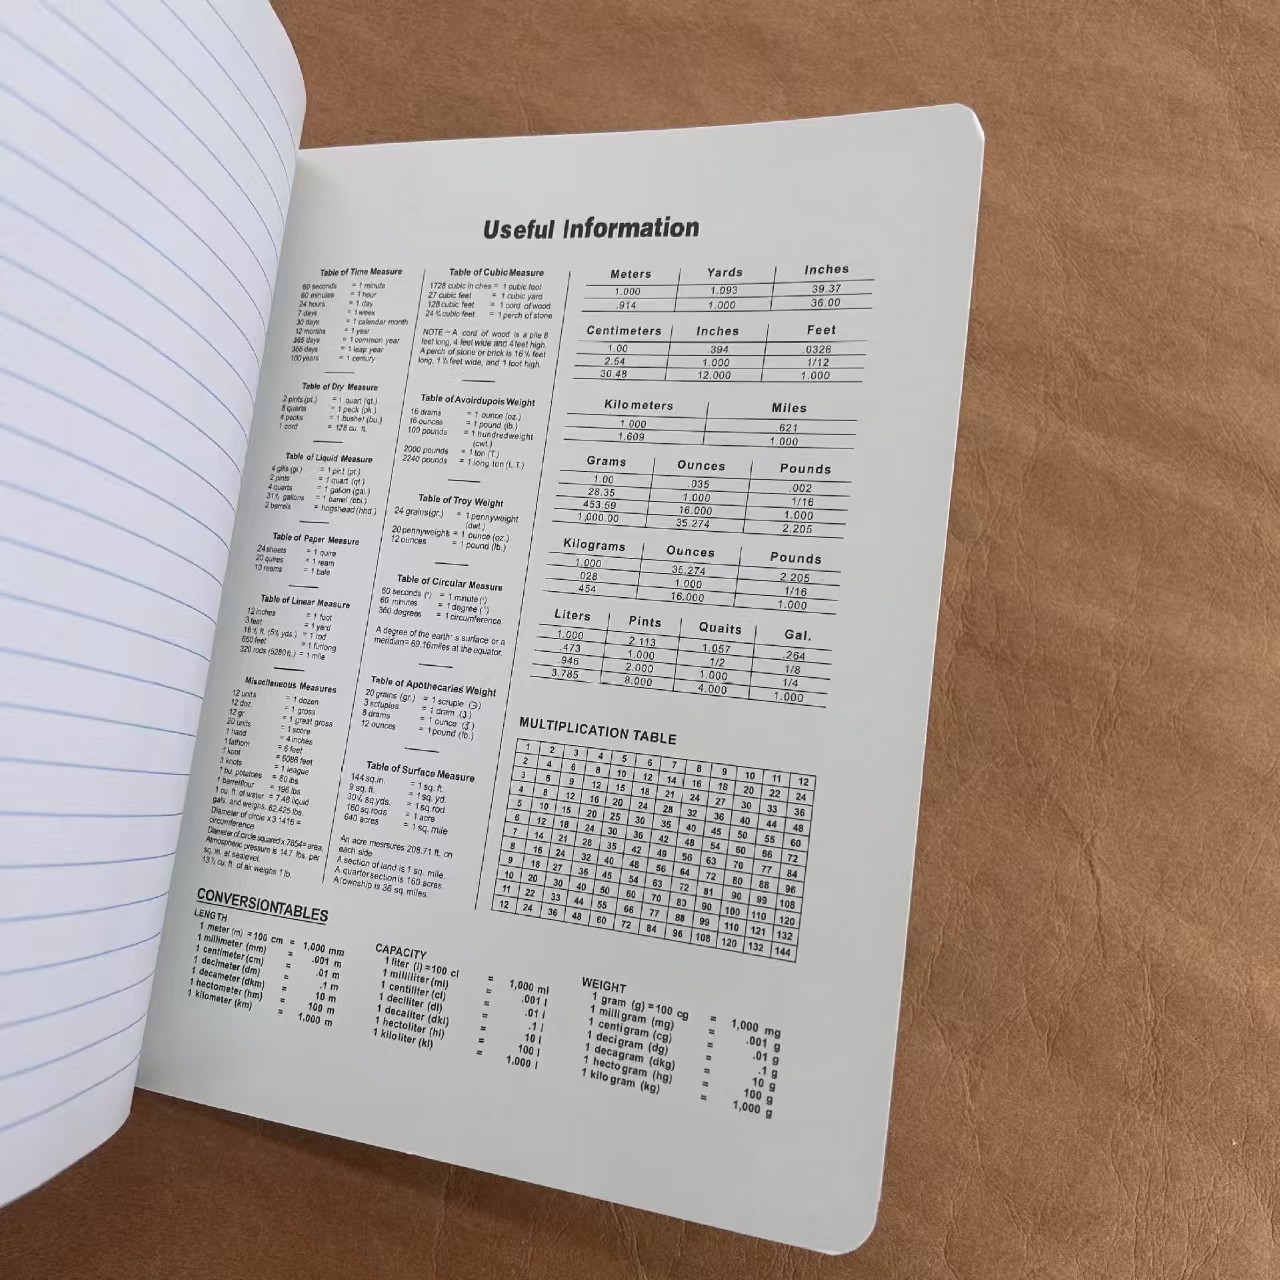 Useful Information
Table of Time Measure
60 seconds = 1 minute
60 minutes = 1 hour
24 hours = 1 day
7 days = 1 week
30 days = 1 calendar month
12 months = 1 year
365 days = 1 common year
366 days = 1 leap year
100 years = 1 century
Table of Dry Measure
2 pints (pt.) = 1 quart (qt.)
8 quarts = 1 peck (pk.)
4 pecks = 1 bushel (bu.)
1 cord = 128 cu. ft.
Table of Liquid Measure
4 gills (gi.) = 1 pint (pt.)
2 pints = 1 quart (qt.)
4 quarts = 1 gallon (gal.)
31½ gallons = 1 barrel (bbl.)
2 barrels = hogshead (hhd.)
Table of Paper Measure
24 sheets = 1 quire
20 quires = 1 ream
10 reams = 1 bale
Table of Linear Measure
12 inches = 1 foot
3 feet = 1 yard
16½ ft. (5½ yds.) = 1 rod
660 feet = 1 furlong
320 rods (5280 ft.) = 1 mile
Miscellaneous Measures
12 units = 1 dozen
12 doz. = 1 gross
12 gr. = 1 great gross
20 units = 1 score
1 hand = 4 inches
1 fathom = 6 feet
1 knot = 6086 feet
3 knots = 1 league
1 bu. potatoes = 60 lbs.
1 barrel flour = 196 lbs
1 cu. ft. of water = 7.48 liquid
gals. and weighs. 62.425 lbs.
Diameter of circle x 3.1416 =
circumference
Diameter of circle squared x .7854 = area.
Atmospheric pressure is 14.7 lbs. per
sq. in. at sealevel.
13½ cu. ft. of air weighs 1 lb.
Table of Cubic Measure
1728 cubic inches = 1 cubic foot
27 cubic feet = 1 cubic yard
128 cubic feet = 1 cord of wood
24¾ cubic feet = 1 perch of stone
NOTE – A cord of wood is a pile 8
feet long, 4 feet wide and 4 feet high.
A perch of stone or brick is 16½ feet
long, 1½ feet wide, and 1 foot high.
Table of Avoirdupois Weight
16 drams = 1 ounce (oz.)
16 ounces = 1 pound (lb.)
100 pounds = 1 hundredweight
(cwt.)
2000 pounds = 1 ton (T.)
2240 pounds = 1 long ton (L.T.)
Table of Troy Weight
24 grains (gr.) = 1 pennyweight
(dwt.)
20 pennyweights = 1 ounce (oz.)
12 ounces = 1 pound (lb.)
Table of Circular Measure
60 seconds (") = 1 minute (')
60 minutes = 1 degree (°)
360 degrees = 1 circumference
A degree of the earth's surface or a
meridian = 69.16 miles at the equator.
Table of Apothecaries Weight
20 grains (gr.) = 1 scruple (℈)
3 scruples = 1 dram (ʒ)
8 drams = 1 ounce (℥)
12 ounces = 1 pound (lb.)
Table of Surface Measure
144 sq. in. = 1 sq. ft.
9 sq. ft. = 1 sq. yd.
30¼ sq. yds. = 1 sq. rod
160 sq. rods = 1 acre
640 acres = 1 sq. mile
An acre mesrsures 208.71 ft. on
each side.
A section of land is 1 sq. mile.
A quarter section is 160 acres.
A township is 36 sq. miles.
Meters Yards Inches
1.000 1.093 39.37
.914 1.000 36.00
Centimeters Inches Feet
1.00 .394 .0328
2.54 1.000 1/12
30.48 12.000 1.000
Kilometers Miles
1.000 621
1.609 1.000
Grams Ounces Pounds
1.00 .035 .002
28.35 1.000 1/16
453.59 16.000 1.000
1,000.00 35.274 2.205
Kilograms Ounces Pounds
1.000 35.274 2.205
.028 1.000 1/16
.454 16.000 1.000
Liters Pints Quaits Gal.
1.000 2.113 1.057 .264
.473 1.000 1/2 1/8
.946 2.000 1.000 1/4
3.785 8.000 4.000 1.000
MULTIPLICATION TABLE
1 2 3 4 5 6 7 8 9 10 11 12
2 4 6 8 10 12 14 16 18 20 22 24
3 6 9 12 15 18 21 24 27 30 33 36
4 8 12 16 20 24 28 32 36 40 44 48
5 10 15 20 25 30 35 40 45 50 55 60
6 12 18 24 30 36 42 48 54 60 66 72
7 14 21 28 35 42 49 56 63 70 77 84
8 16 24 32 40 48 56 64 72 80 88 96
9 18 27 36 45 54 63 72 81 90 99 108
10 20 30 40 50 60 70 80 90 100 110 120
11 22 33 44 55 66 77 88 99 110 121 132
12 24 36 48 60 72 84 96 108 120 132 144
CONVERSIONTABLES
LENGTH
1 meter (m) = 100 cm = 1,000 mm
1 millimeter (mm) = .001 m
1 centimeter (cm) = .01 m
1 decimeter (dm) = .1 m
1 decameter (dkm) = 10 m
1 hectometer (hm) = 100 m
1 kilometer (km) = 1,000 m
CAPACITY
1 liter (l) = 100 cl = 1,000 ml
1 milliliter (ml) = .001 l
1 centiliter (cl) = .01 l
1 deciliter (dl) = .1 l
1 decaliter (dkl) = 10 l
1 hectoliter (hl) = 100 l
1 kiloliter (kl) = 1,000 l
WEIGHT
1 gram (g) = 100 cg = 1,000 mg
1 milligram (mg) = .001 g
1 centigram (cg) = .01 g
1 decigram (dg) = .1 g
1 decagram (dkg) = 10 g
1 hectogram (hg) = 100 g
1 kilogram (kg) = 1,000 g